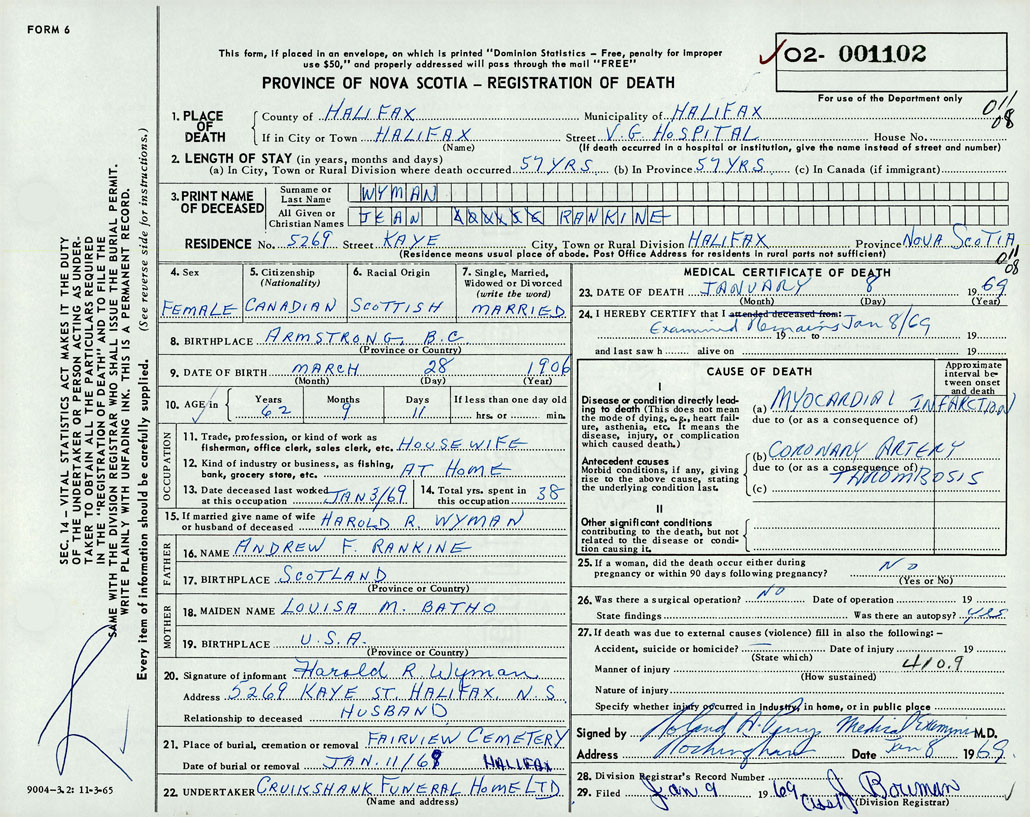 FORM 6
This form, if placed in an envelope, on which is printed "Dominion Statistics – Free, penalty for improper
use $50," and properly addressed will pass through the mail "FREE"
PROVINCE OF NOVA SCOTIA – REGISTRATION OF DEATH
✓ 02- 001102
For use of the Department only
011
08
1. PLACE OF DEATH
County of HALIFAX Municipality of HALIFAX
If in City or Town HALIFAX Street V.G. HOSPITAL House No.
(Name) (If death occurred in a hospital or institution, give the name instead of street and number)
2. LENGTH OF STAY (in years, months and days)
(a) In City, Town or Rural Division where death occurred 57 YRS (b) In Province 57 YRS (c) In Canada (if immigrant)
3. PRINT NAME OF DECEASED
Surname or Last Name WYMAN
All Given or Christian Names JEAN RANKINE
RESIDENCE No. 5269 Street KAYE City, Town or Rural Division HALIFAX Province NOVA SCOTIA
(Residence means usual place of abode. Post Office Address for residents in rural parts not sufficient)
011
08
4. Sex FEMALE
5. Citizenship (Nationality) CANADIAN
6. Racial Origin SCOTTISH
7. Single, Married, Widowed or Divorced (write the word) MARRIED
8. BIRTHPLACE ARMSTRONG B.C.
(Province or Country)
9. DATE OF BIRTH MARCH 28 1906
(Month) (Day) (Year)
10. AGE in Years 62 Months 9 Days 11 If less than one day old hrs. or min.
OCCUPATION
11. Trade, profession, or kind of work as
fisherman, office clerk, sales clerk, etc. HOUSEWIFE
12. Kind of industry or business, as fishing,
bank, grocery store, etc. AT HOME
13. Date deceased last worked
at this occupation JAN 3/69
14. Total yrs. spent in
this occupation 38
15. If married give name of wife
or husband of deceased HAROLD R. WYMAN
FATHER
16. NAME ANDREW F. RANKINE
17. BIRTHPLACE SCOTLAND
(Province or Country)
MOTHER
18. MAIDEN NAME LOUISA M. BATHO
19. BIRTHPLACE U.S.A.
(Province or Country)
20. Signature of informant Harold R. Wyman
Address 5269 KAYE ST. HALIFAX N.S.
Relationship to deceased HUSBAND
21. Place of burial, cremation or removal FAIRVIEW CEMETERY
Date of burial or removal JAN. 11/69 HALIFAX
22. UNDERTAKER CRUIKSHANK FUNERAL HOME LTD
(Name and address)
MEDICAL CERTIFICATE OF DEATH
23. DATE OF DEATH JANUARY 8 1969
(Month) (Day) (Year)
24. I HEREBY CERTIFY that I attended deceased from:
Examined Remains Jan 8/69
19 to 19
and last saw h alive on 19
CAUSE OF DEATH
Approximate interval between onset and death
I
Disease or condition directly leading to death (This does not mean the mode of dying, e.g., heart failure, asthenia, etc. It means the disease, injury, or complication which caused death.)
(a) MYOCARDIAL INFARCTION
due to (or as a consequence of)
Antecedent causes
Morbid conditions, if any, giving rise to the above cause, stating the underlying condition last.
(b) CORONARY ARTERY
due to (or as a consequence of)
THROMBOSIS
(c)
II
Other significant conditions
contributing to the death, but not related to the disease or condition causing it.
25. If a woman, did the death occur either during
pregnancy or within 90 days following pregnancy? NO
(Yes or No)
26. Was there a surgical operation? NO Date of operation 19
State findings Was there an autopsy? yes
27. If death was due to external causes (violence) fill in also the following: –
Accident, suicide or homicide? — Date of injury 19
(State which)
Manner of injury 410.9
(How sustained)
Nature of injury
Specify whether injury occurred in Industry, in home, or in public place
Signed by Medical Examiner M.D.
Address Rockingham Date Jan 8 1969
28. Division Registrar's Record Number
29. Filed Jan 9 1969 J Bowman
(Division Registrar)
SEC. 14 – VITAL STATISTICS ACT MAKES IT THE DUTY
OF THE UNDERTAKER OR PERSON ACTING AS UNDER-
TAKER TO OBTAIN ALL THE PARTICULARS REQUIRED
IN THE "REGISTRATION OF DEATH" AND TO FILE THE
SAME WITH THE DIVISION REGISTRAR WHO SHALL ISSUE THE BURIAL PERMIT.
WRITE PLAINLY WITH UNFADING INK. THIS IS A PERMANENT RECORD.
Every item of information should be carefully supplied. (See reverse side for instructions.)
9004-3.2: 11-3-65